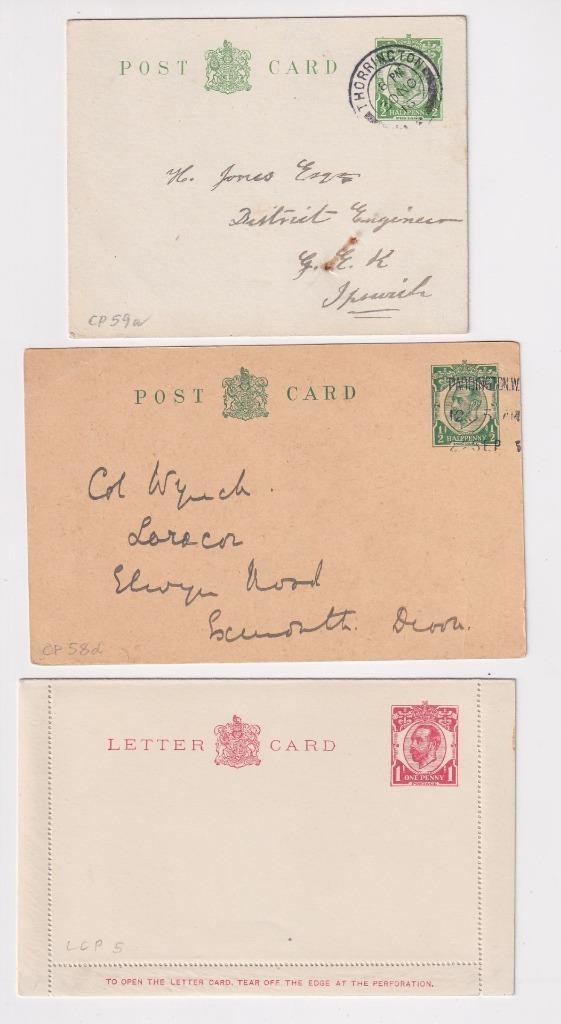 POST CARD
THORRINGTON
8 PM
½ HALFPENNY ½
H. Jones Esqre
District Engineer
G. E. R
Ipswich
CP59a
POST CARD
PADDINGTON.W.
SEP
½ HALFPENNY ½
Col Wynch.
Laracor
Elwyn Road
Exmouth. Devon.
CP58d
LETTER CARD
1 ONE PENNY 1
LCP 5
TO OPEN THE LETTER CARD, TEAR OFF THE EDGE AT THE PERFORATION.